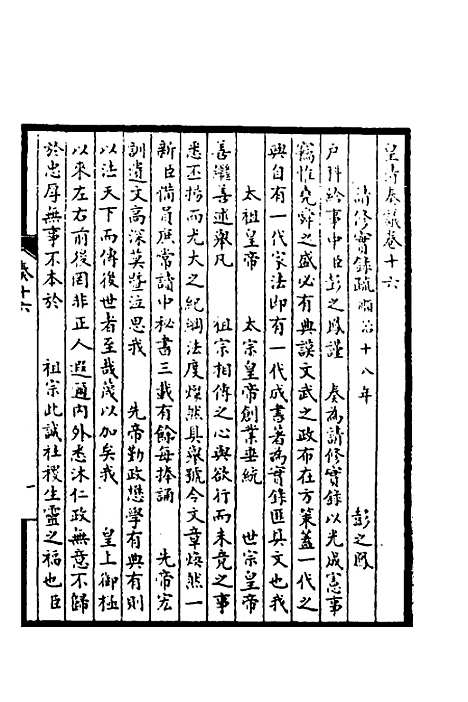 皇清奏議卷十六
請修實錄疏順治十八年 彭之鳳
戶科給事中臣彭之鳳謹 奏為請修實錄以光成憲事
竊惟堯舜之盛必有典謨文武之政布在方策蓋一代之
興自有一代家法即有一代成書著為實錄匪具文也我
太祖皇帝 太宗皇帝創業垂統 世宗皇帝
善繼善述舉凡 祖宗相傳之心與欲行而未竟之事
悉丕揚而光大之紀綱法度燦然具舉號令文章煥然一
新臣備員庶常讀中秘書三載有餘每捧誦 先帝宏
訓遺文高深莫罄泣思我 先帝勤政懋學有典有則
以法天下而傳後世者至哉蔑以加矣我 皇上御極
以來左右前後罔非正人遐邇內外悉沐仁政無意不歸
於忠厚無事不本於 祖宗此誠社稷生靈之福也臣
卷十六
一